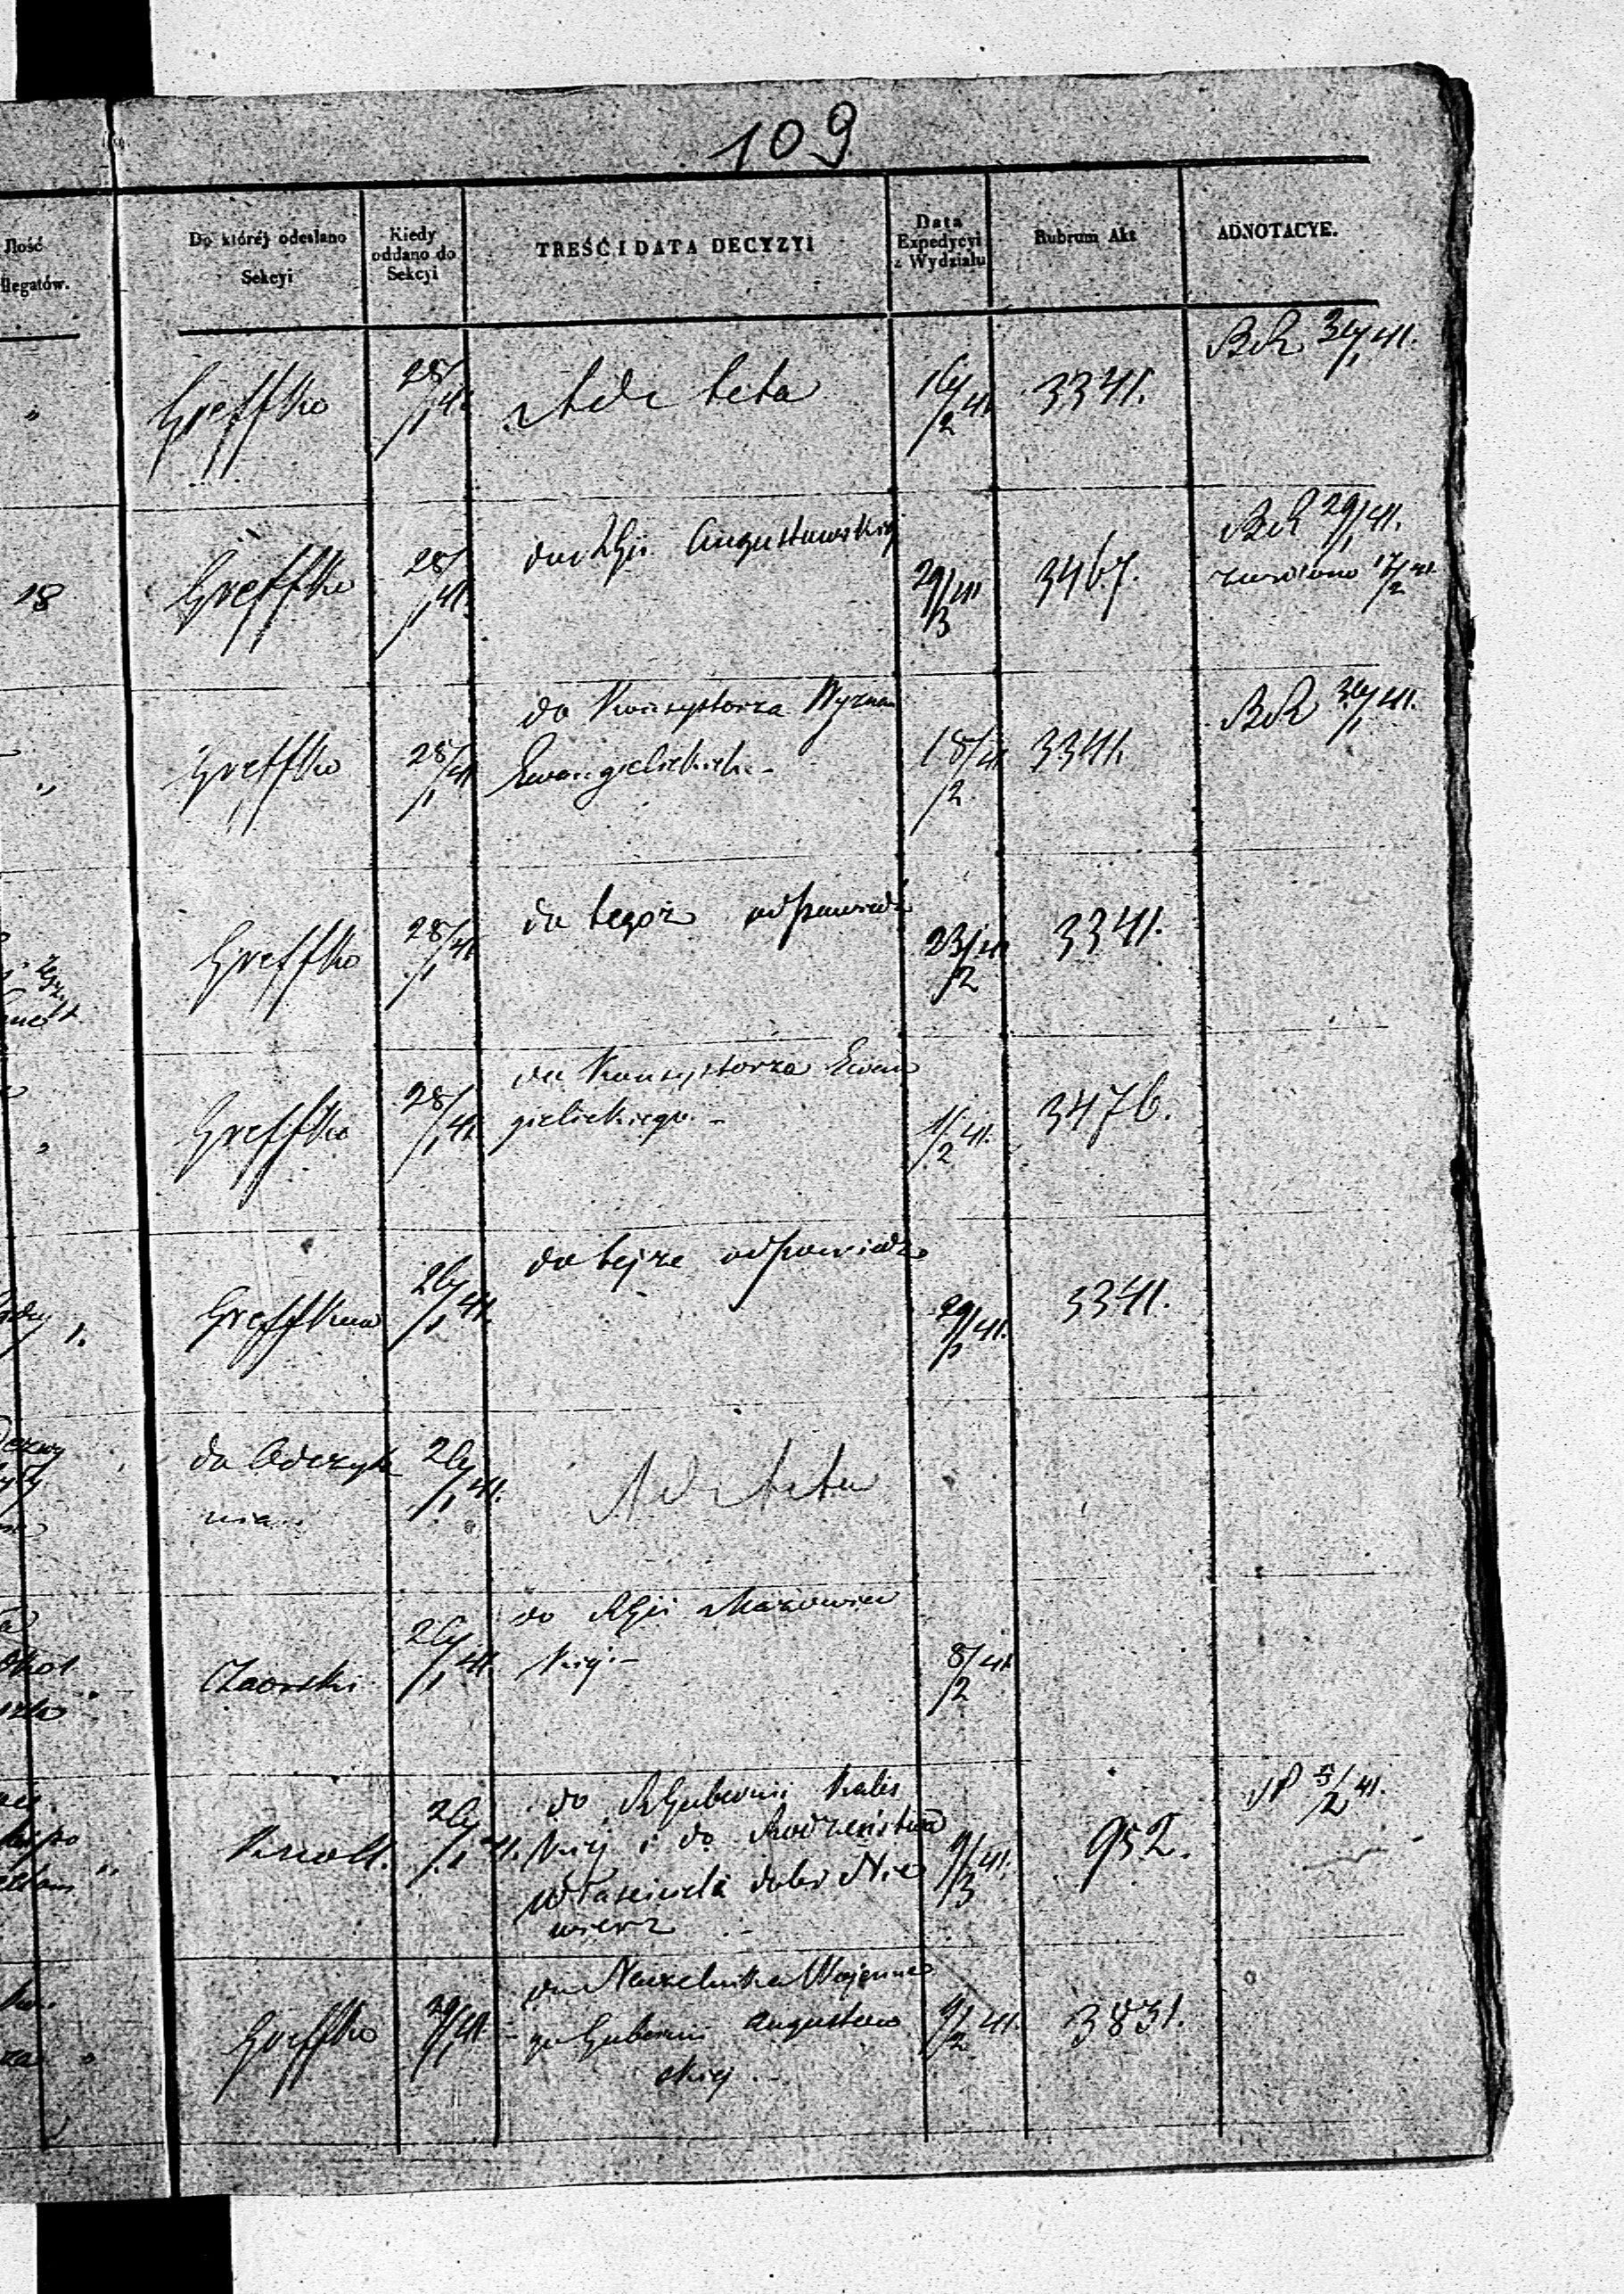 109
Ilość
llegatów.
Do któréj odesłano
Sekcyi
Kiedy
oddano do
Sekcyi
TREŚĆ I DATA DECYZYI
Data
Expedycyi
z Wydziału
Rubrum Akt
ADNOTACYE.
"
Greffko
28/1 41.
Ad acta
16/2 41
3341.
18
Greffko
28/1 41.
do Augustowskiej
29/3 41
3467.
29/1 41.
zwrócono 17/2 41
"
Greffko
28/1 41
do Konsystorza Wyznań
Ewangielickich.-
18/2 41
3341.
Greffko
28/1 41
do tegoż odpowiedź
23/2 41
3341.
"
Greffko
28/1 41.
do Konsystorza Ewan
gielickiego.-
1/2 41.
3476.
1.
26/1 41.
do tejże odpowiedź
29/1 41.
3341.
do Odczyta
nia
26/1 41.
Ad acta
Czaorski
26/1 41.
do Mazowiec
kiej.-
8/2 41
"
Knoll.
26/1 41.
do Gubernii Kalis
kiej i do
Właściciela dóbr Nie
wierz
9/3 41.
952.
5/2 41.
"
Greffko
29/1 41.
do Naczelnika Wojenne
go Gubernii Augustow
skiej.-
9/2 41.
3831.